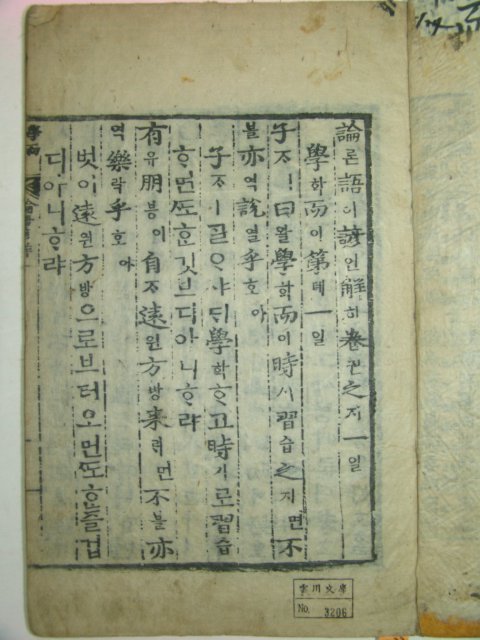 論론語어諺언解ᄒᆡ卷권之지一일
學학而이第뎨一일
子ᄌᆞㅣ曰왈學학而이時시習습之지면不
블亦역說열乎호아
子ᄌᆞㅣᄀᆞᆯᄋᆞ샤ᄃᆡ學학ᄒᆞ고時시로習습
ᄒᆞ면ᄯᅩᄒᆞᆫ깃브디아니ᄒᆞ랴
有유朋븡이自ᄌᆞ遠원方방來ᄅᆡ면不블亦
역樂락乎호아
벗이遠원方방으로브터오면ᄯᅩᄒᆞᆫ즐겁
디아니ᄒᆞ랴
雲川文庫
No. 3206